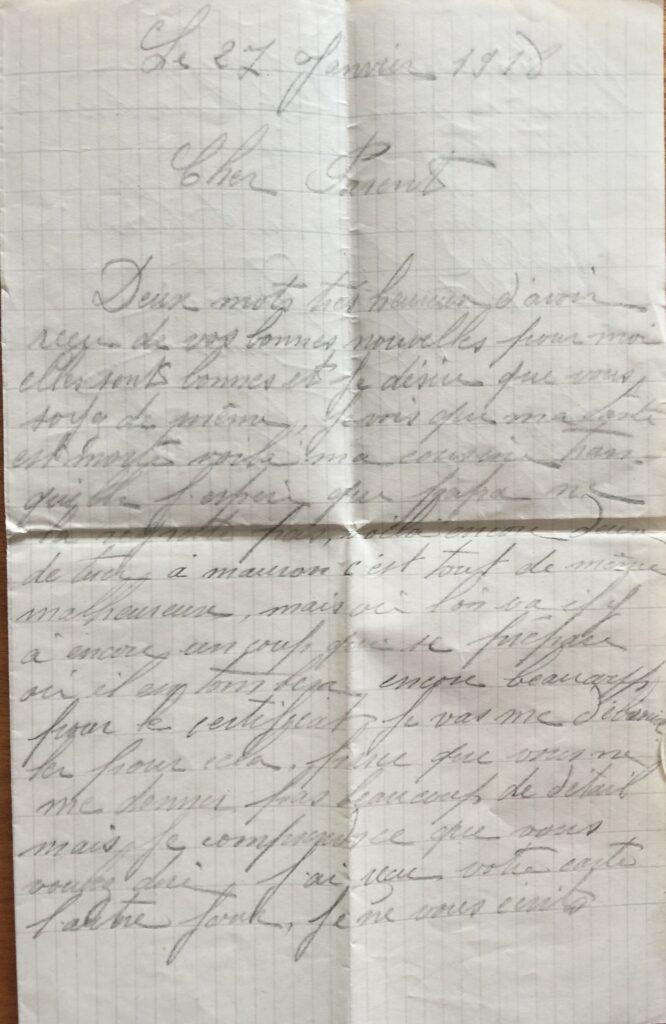 Le 27 Janvier 1918
Cher Parent
Deux mots très heureux d'avoir
reçu de vos bonnes nouvelles pour moi
elles sont bonnes et je désire que vous
soyez de même, je vois que ma tante
est morte voila ma cousine tran
quille j'espère que papa ne
la regrette pas, voila encore deux
de tués à mauron c'est tout de même
malheureux, mais où l'on va il y
à encore un coup qui se prépare
où il en tombera encore beaucoup
pour le certificat je vas me débrouil
ler pour cela, parce que vous ne
me donner pas beaucoup de détail
mais je comprend ce que vous
voulez dire j'ai reçu votre carte
l'autre jour, je ne vous écrits